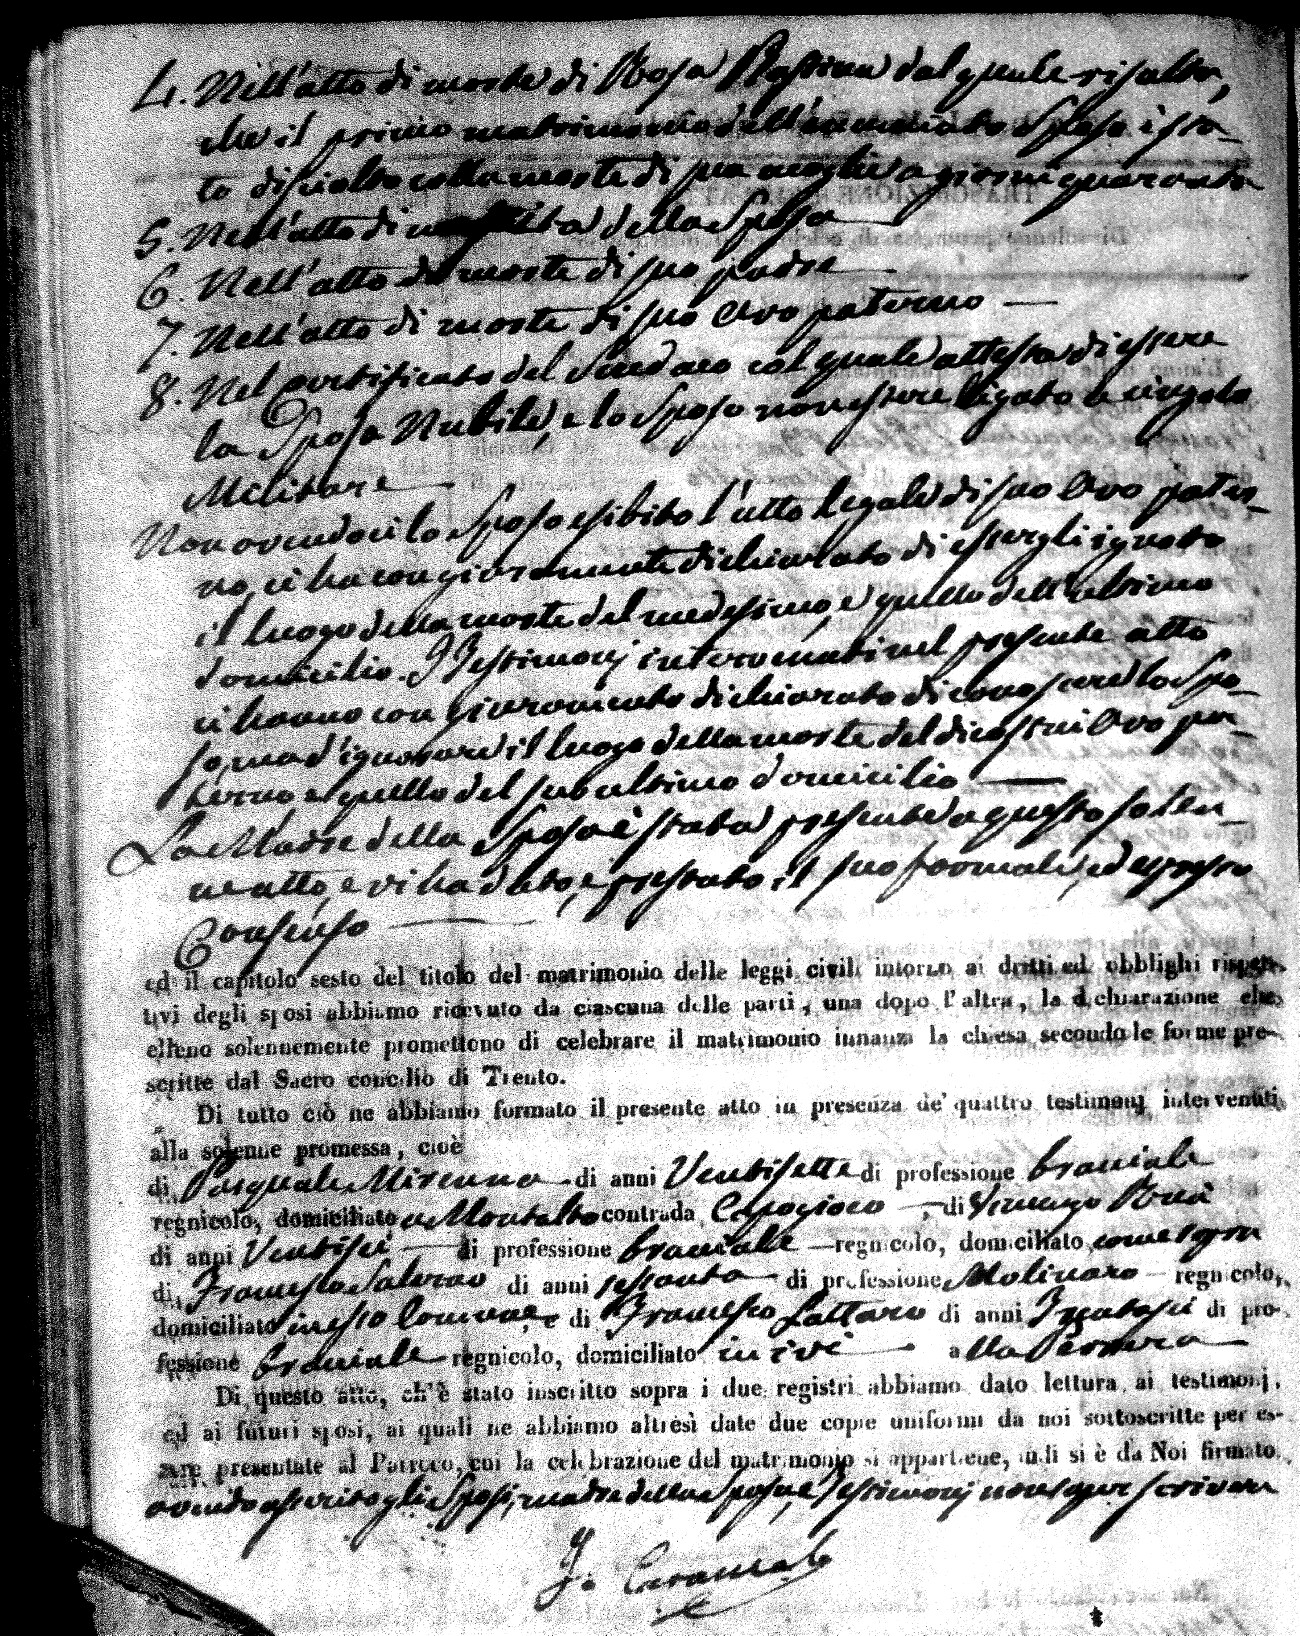 4. Nell'atto di morte di Rosa dal quale risulta,
che il primo matrimonio dell'enunciato Sposo è sta-
to disciolto colla morte di sua moglie a giorni quaranta
5. Nell'atto di nascita della Sposa
6. Nell'atto di morte di suo padre
7. Nell'atto di morte di suo Avo paterno
8. Nel Certificato del Sindaco col quale attesta di essere
la Sposa Nubile, e lo Sposo non essere ligato a vincolo
Militare
Non avendoci lo Sposo esibito l'atto legale di suo Avo pater-
no, ci ha con giuramento dichiarato di essergli ignoto
il luogo della morte del medesimo, e quello dell'ultimo
domicilio. I Testimonj intervenuti nel presente atto
ci hanno con giuramento dichiarato di conoscere lo Spo-
so, ma d'ignorare il luogo della morte del di costui Avo pa-
terno e quello del suo ultimo domicilio
La Madre della Sposa è stata presente a questo solen-
ne atto, e vi ha dato, e prestato il suo formale, ed espresso
Consenso
ed il capitolo sesto del titolo del matrimonio delle leggi civili intorno ai dritti ed obblighi rispet-
tivi degli sposi abbiamo ricevuto da ciascuna delle parti, una dopo l'altra, la dichiarazione che
elleno solennemente promettono di celebrare il matrimonio innanzi la chiesa secondo le forme pre-
scritte dal Sacro concilio di Trento.
Di tutto ciò ne abbiamo formato il presente atto in presenza de' quattro testimonj intervenuti
alla solenne promessa, cioè
di Pasquale Mirenna di anni Ventisette di professione braciale
regnicolo, domiciliato a Montalto contrada Caposioco, di
di anni Ventisei di professione braciale regnicolo, domiciliato come sopra
di Francesco Salerno di anni sessanta di professione Molinaro regnicolo,
domiciliato in esto Comune, e di Francesco Lattaro di anni Trentasei di pro-
fessione braciale regnicolo, domiciliato in ivi alla
Di questo atto, ch'è stato inscritto sopra i due registri abbiamo dato lettura ai testimonj,
ed ai futuri sposi, ai quali ne abbiamo altresì date due copie uniformi da noi sottoscritte per es-
sere presentate al Parroco, cui la celebrazione del matrimonio si appartiene, indi si è da Noi firmato
avendo asserito gli Sposi, madre della Sposa, e Testimonj non saper scrivere